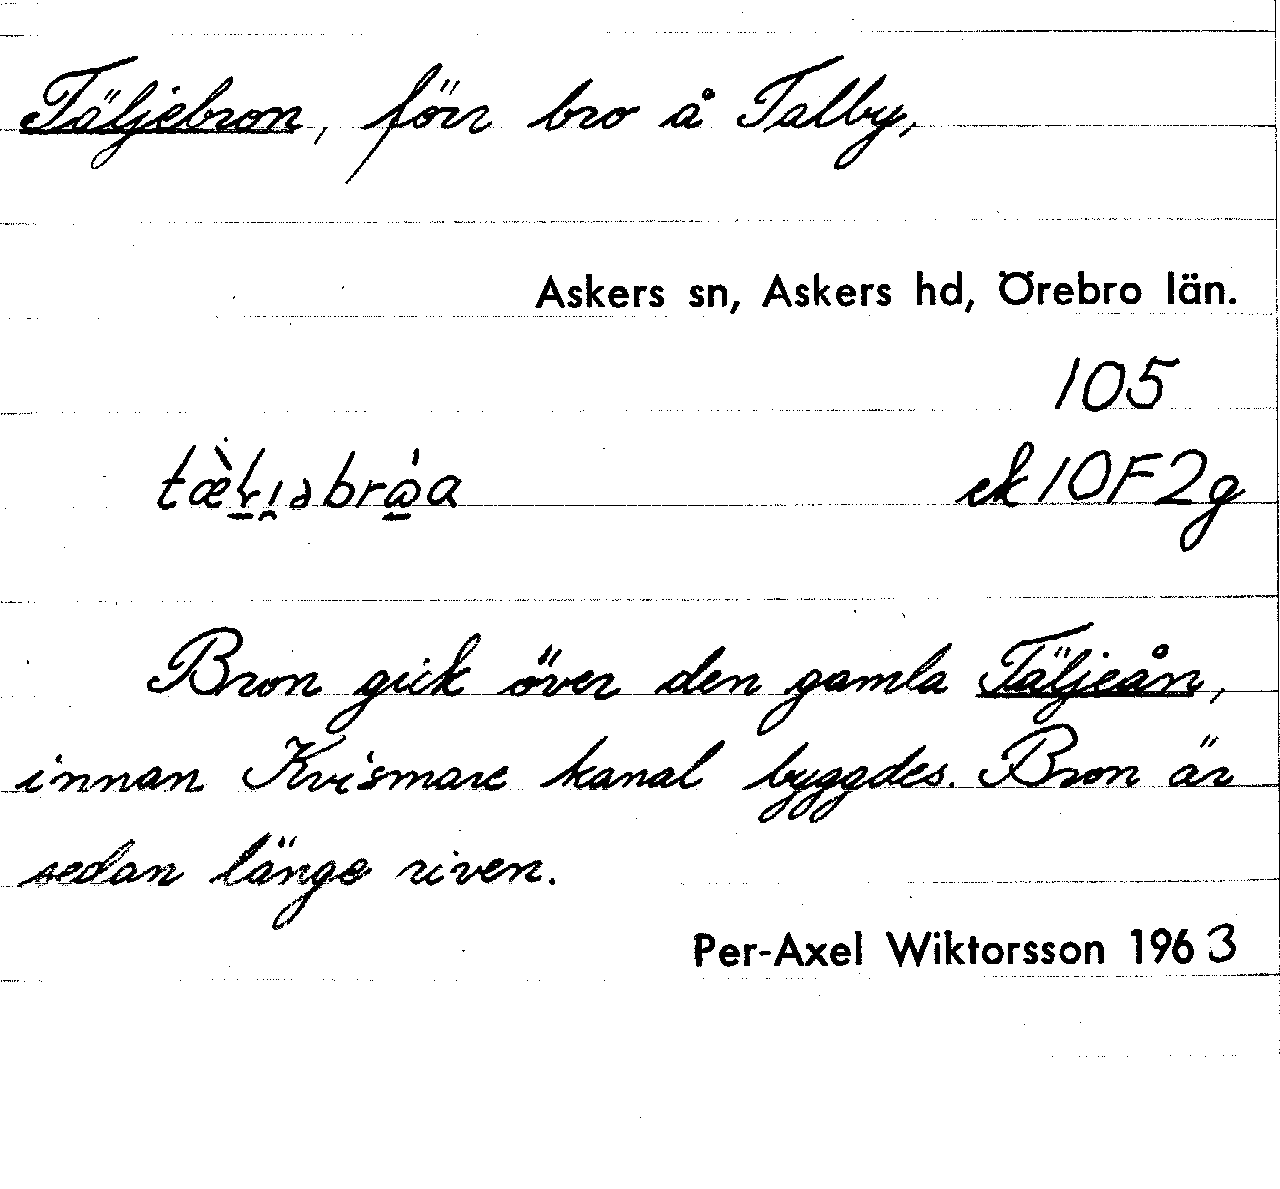 Täljebron, förr bro å Talby,
Askers sn, Askers hd, Örebro län.
105
ek 10F2g
Bron gick över den gamla Täljeån,
innan Kvismare kanal byggdes. Bron är
sedan länge riven.
Per-Axel Wiktorsson 1963